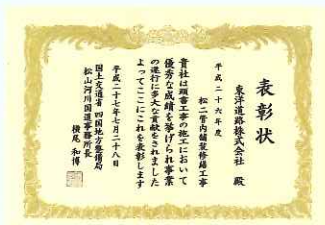 表彰状
東洋道路株式会社 殿
平成二十六年度
松二管内舗装修繕工事
貴社は頭書工事の施工において
優秀な成績を挙げられ事業
の遂行に多大な貢献をされました
よってここにこれを表彰します
平成二十七年七月二十八日
国土交通省 四国地方整備局
松山河川国道事務所長
横尾 和博